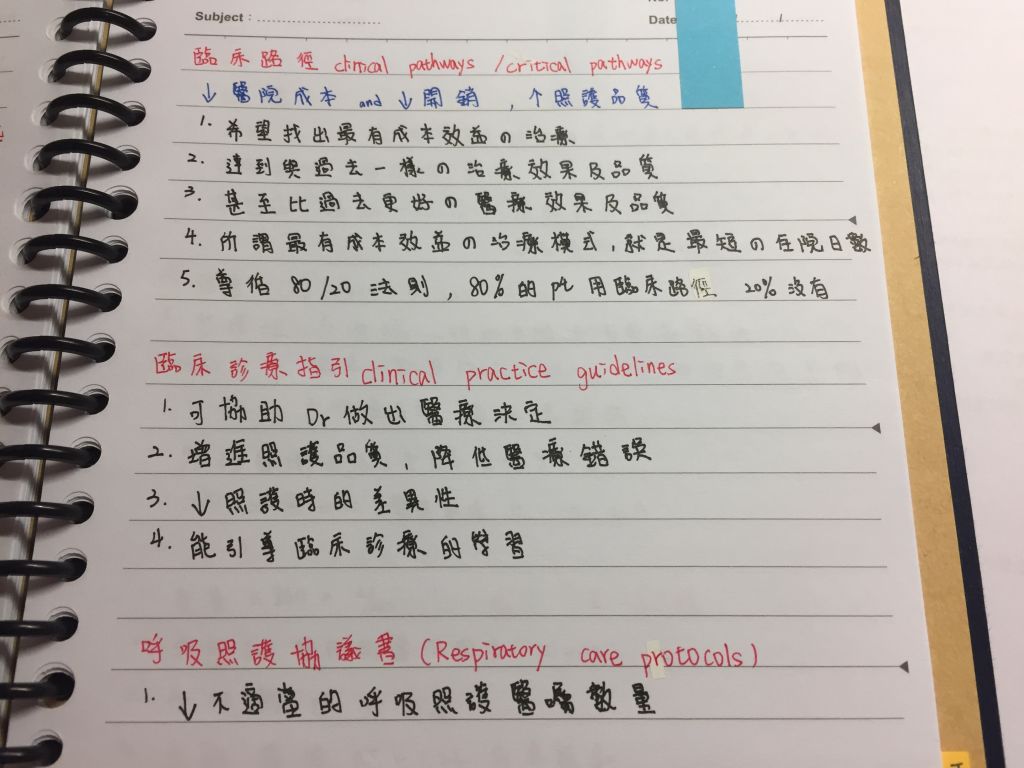 Subject：
Date
臨床路徑 clinical pathways /critical pathways
↓醫院成本 and ↓開銷，个照護品質
1. 希望找出最有成本效益の治療
2. 達到與過去一樣の治療效果及品質
3. 甚至比過去更好の醫療效果及品質
4. 所謂最有成本效益の治療模式，就是最短の住院日數
5. 尊循 80/20 法則，80%的 pt 用臨床路徑 20%沒有
臨床診療指引 clinical practice guidelines
1. 可協助 Dr 做出醫療決定
2. 增進照護品質，降低醫療錯誤
3. ↓照護時的差異性
4. 能引導臨床診療的學習
呼吸照護協議書 (Respiratory care protocols)
1. ↓不適當的呼吸照護醫囑數量